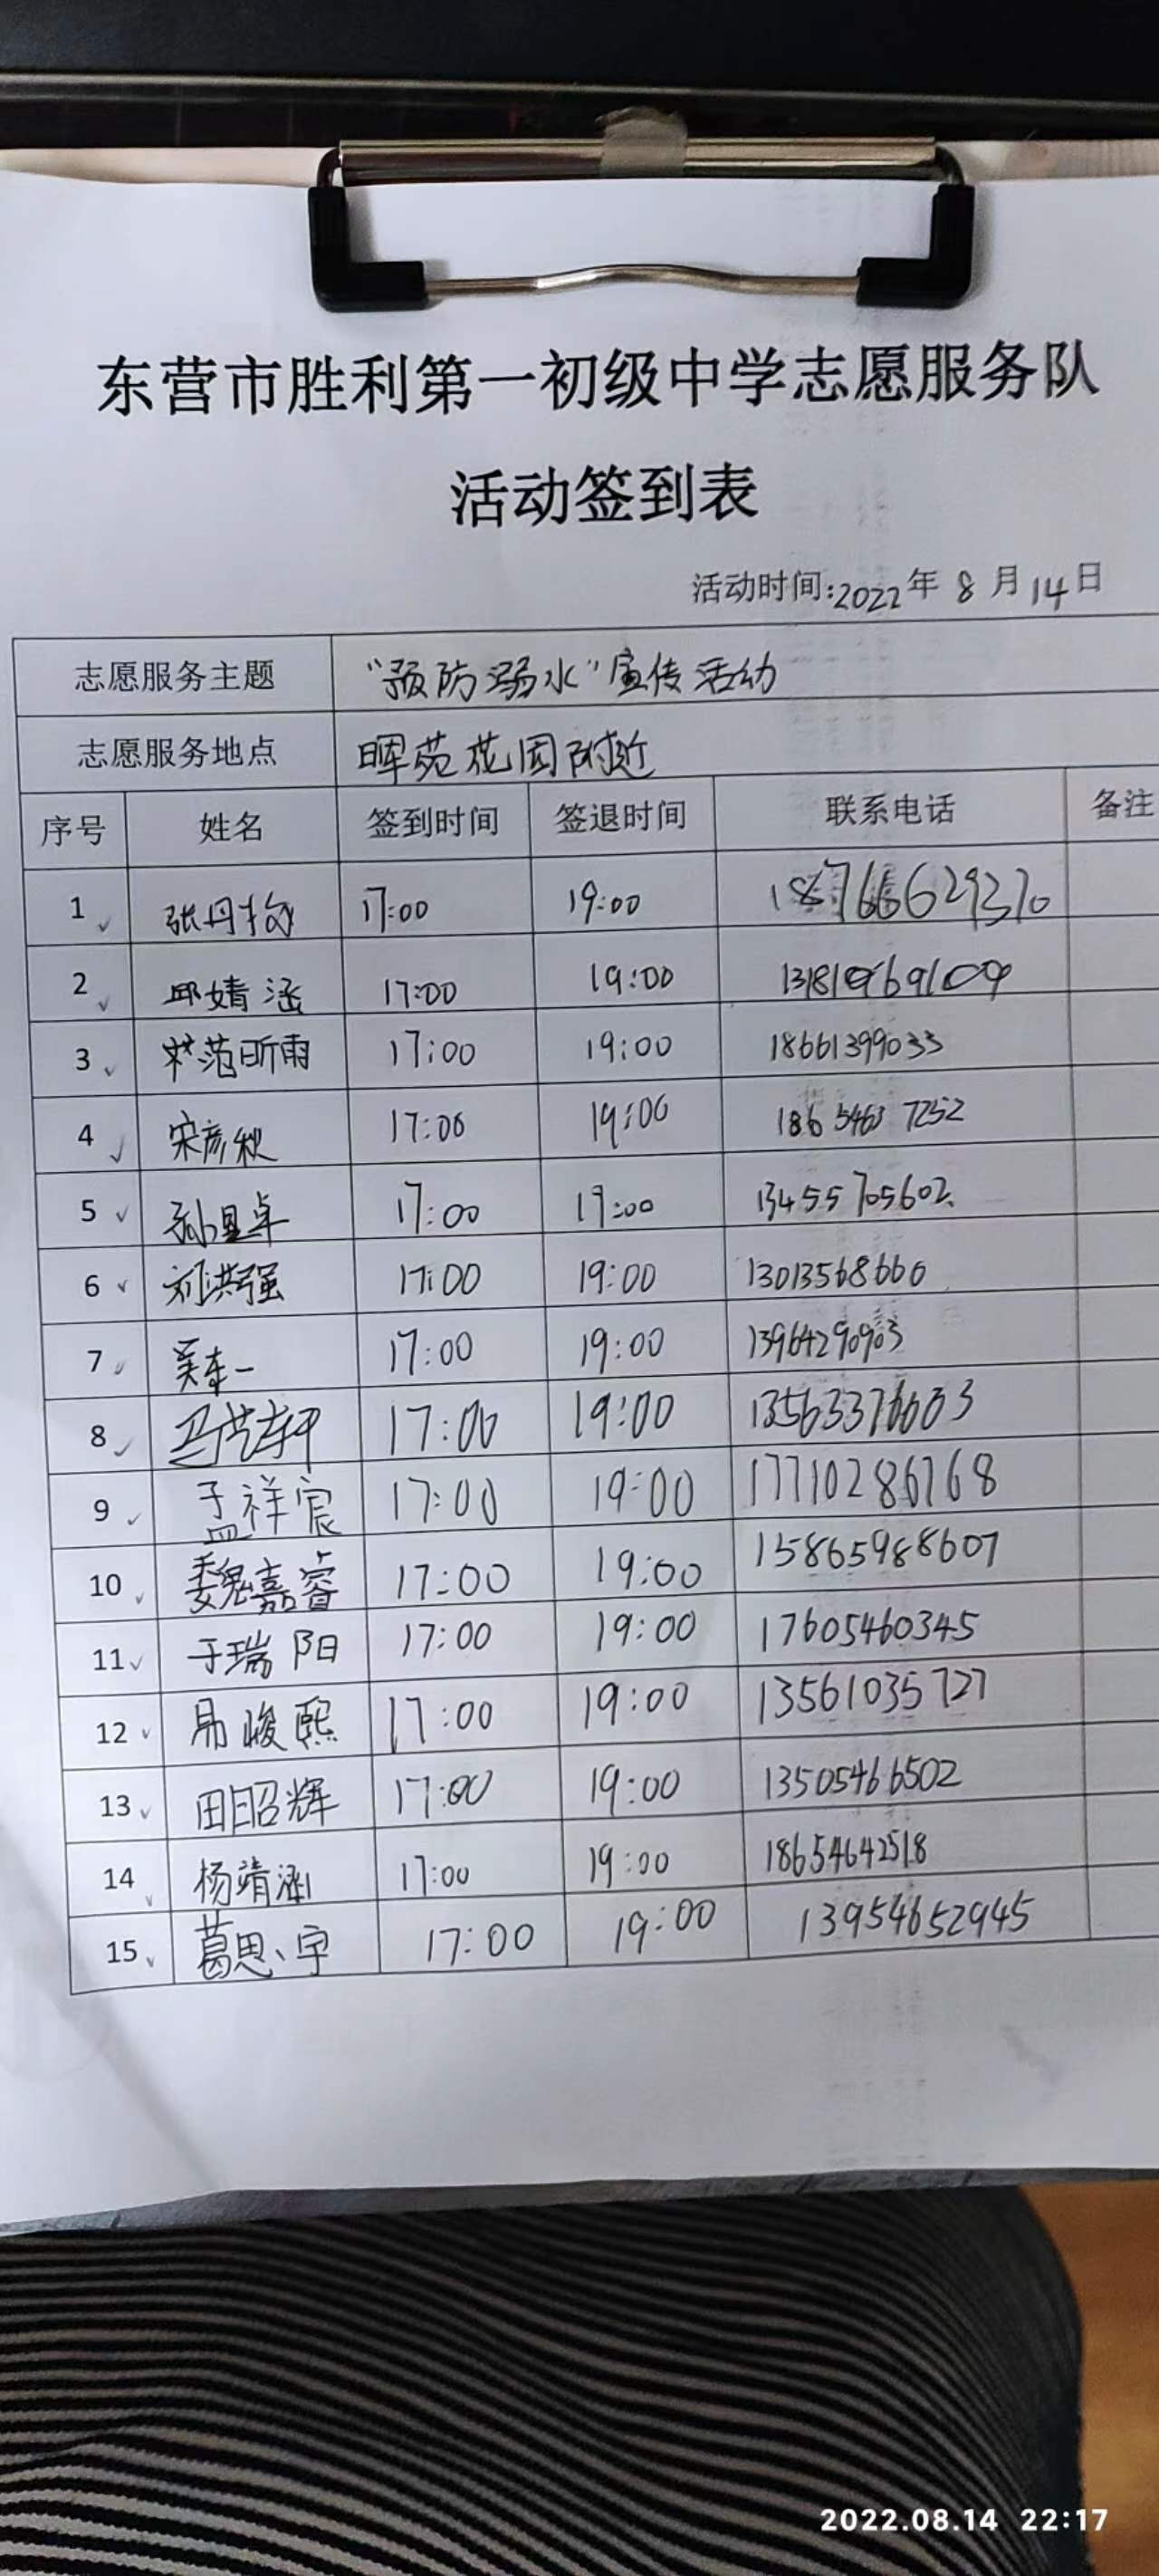 东营市胜利第一初级中学志愿服务队
活动签到表
活动时间:2022年8月14日
志愿服务主题 “预防溺水”宣传活动
志愿服务地点 晖苑花园附近
序号 姓名 签到时间 签退时间 联系电话 备注
1 17:00 19:00 18766629370
2 邱婧涵 17:00 19:00 13181969109
3 范昕雨 17:00 19:00 18661399033
4 宋彦秋 17:00 19:00 186 5463 7252
5 17:00 19:00 13455705602
6 刘洪强 17:00 19:00 13013568660
7 吴奉一 17:00 19:00 13964290903
8 17:00 19:00 13563376603
9 孟祥宸 17:00 19:00 17710286768
10 魏嘉睿 17:00 19:00 15865988607
11 于瑞阳 17:00 19:00 17605460345
12 易峻熙 17:00 19:00 13561035727
13 田昭辉 17:00 19:00 13505466502
14 杨靖涵 17:00 19:00 18654642518
15 葛思宇 17:00 19:00 13954652945
2022.08.14 22:17